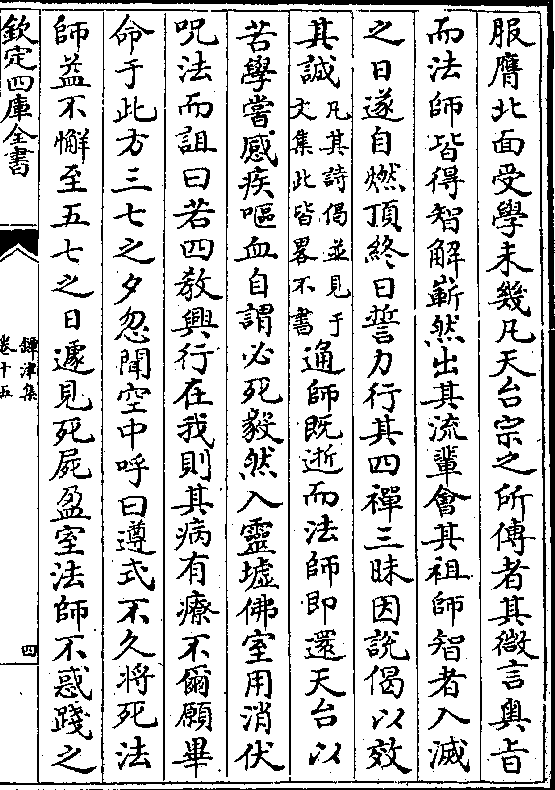 服膺北面受學未幾凡天台宗之所傳者其微言奧旨
而法師皆得智解嶄然出其流輩會其祖師智者入滅
之日遂自燃頂終日誓力行其四禪三昧因說偈以效
其誠凡其詩偈並見于文集此皆畧不書通師既逝而法師即還天台以
苦學嘗感疾嘔血自謂必死毅然入靈墟佛室用消伏
咒法而詛曰若四教興行在我則其病有療不爾願畢
命于此方三七之夕忽聞空中呼曰遵式不久將死法
師益不懈至五七之日遽見死屍盈室法師不惑踐之
欽定四庫全書
鐔津集
卷十五
四